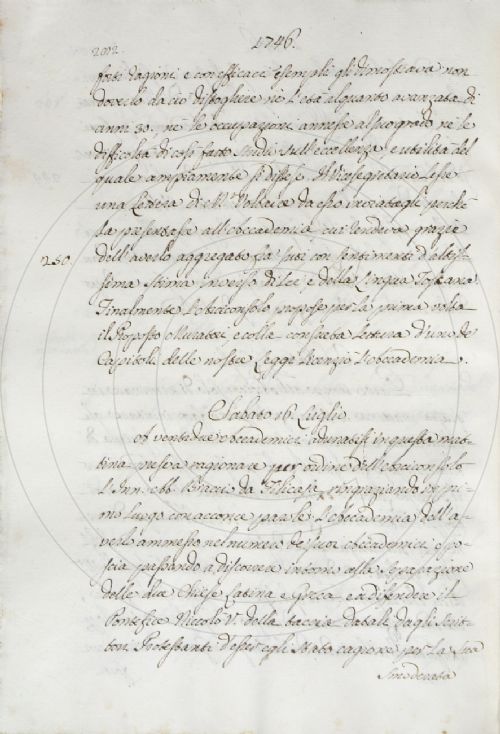 202
1746.
forti ragioni e con efficaci esempli gli dimostrava non
doverlo da ciò distogliere nè l'età alquanto avanzata di
anni 30. nè le occupazioni annesse al suo grado nè le
difficoltà di così fatto studio sull'eccellenza, e utilità del
quale ampiamente si distese. Il Vicesegretario lesse
una Lettera di Mr. Volteire da esso inviatagli perchè
la presentasse all'Accademia cui rendeva grazie
dell'averlo aggregato fra suoi con sentimenti d'altis-
250.
sima stima inverso di Lei, e della Lingua Toscana.
Finalmente l'Arciconsolo propose per la prima volta
il Proposto Muratori, e colla consueta Lettura d'uno de
Capitoli delle nostre Leggi licenziò l'Accademia.
Sabato 16. Luglio.
A ventidue Accademici adunatisi in questa mat-
tina prese a ragionare per ordine dell'Arciconsolo
l'Inn. Abb. Bracci da Filicaja ringraziando in pri-
mo luogo con acconce parole l'Accademia dell'a-
verlo ammesso nel numero de suoi Accademici e po-
scia passando a discorrere intorno alla separazione
delle due Chiese Latina e Greca e a difendere il
Pontefice Niccolo V. della taccia datali dagli Scrit-
tori Protestanti d'esser egli stato cagione per la sua
smoderata